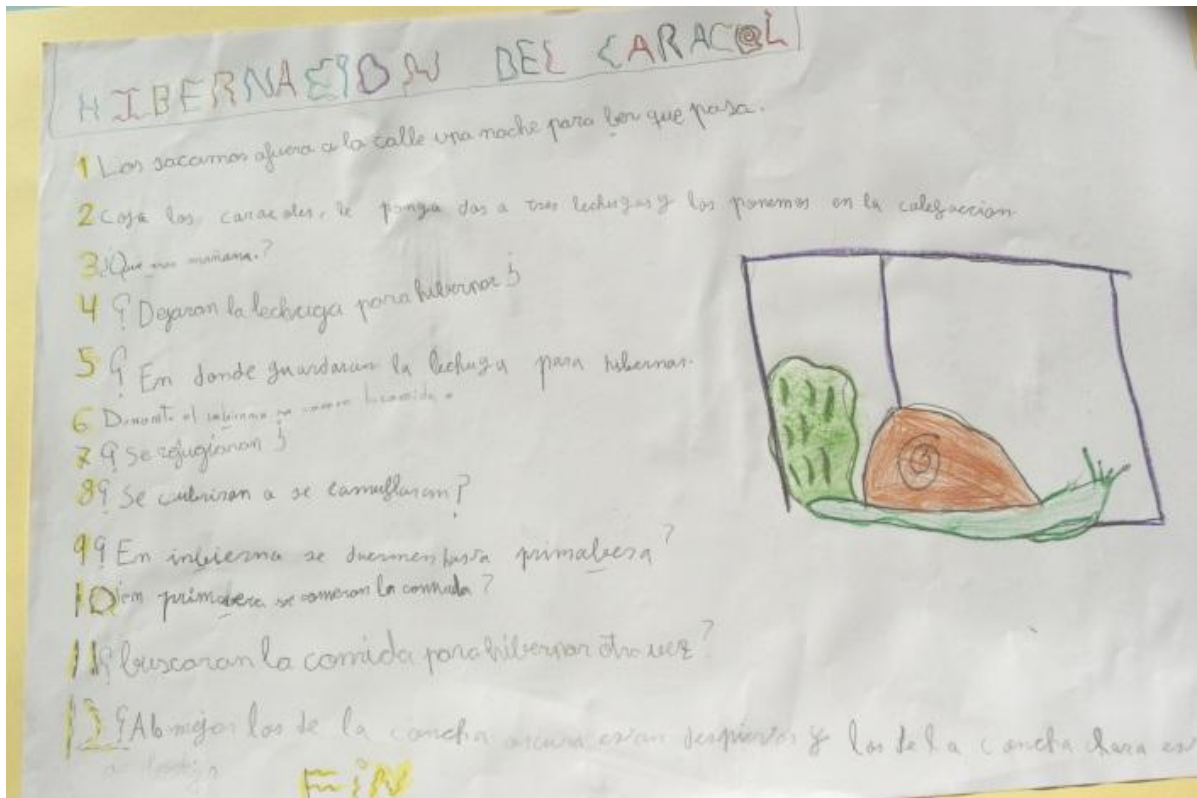 HIBERNACION DEL CARACOL
1 Los sacamos afuera a la calle una noche para ber que pasa.
2 Coja los caracoles, le ponga dos a tres lechugas y los ponemos en la calefaccion
3 ¿Que mañana?
4 ¿Dejaran la lechuga para hibernar?
5 ¿En donde guardaran la lechuga para hibernar.
6 Durante el
7 ¿Se refugiaran?
8 ¿Se cubriran a se camuflaran?
9 ¿En inbierno se duermen hasta primabera?
10 ¿en primabera se comeran la comida?
11 ¿buscaran la comida para hibernar otra vez?
12 ¿A lo mejor los de la concha oscura estan despiertos y los de la concha clara
FIN